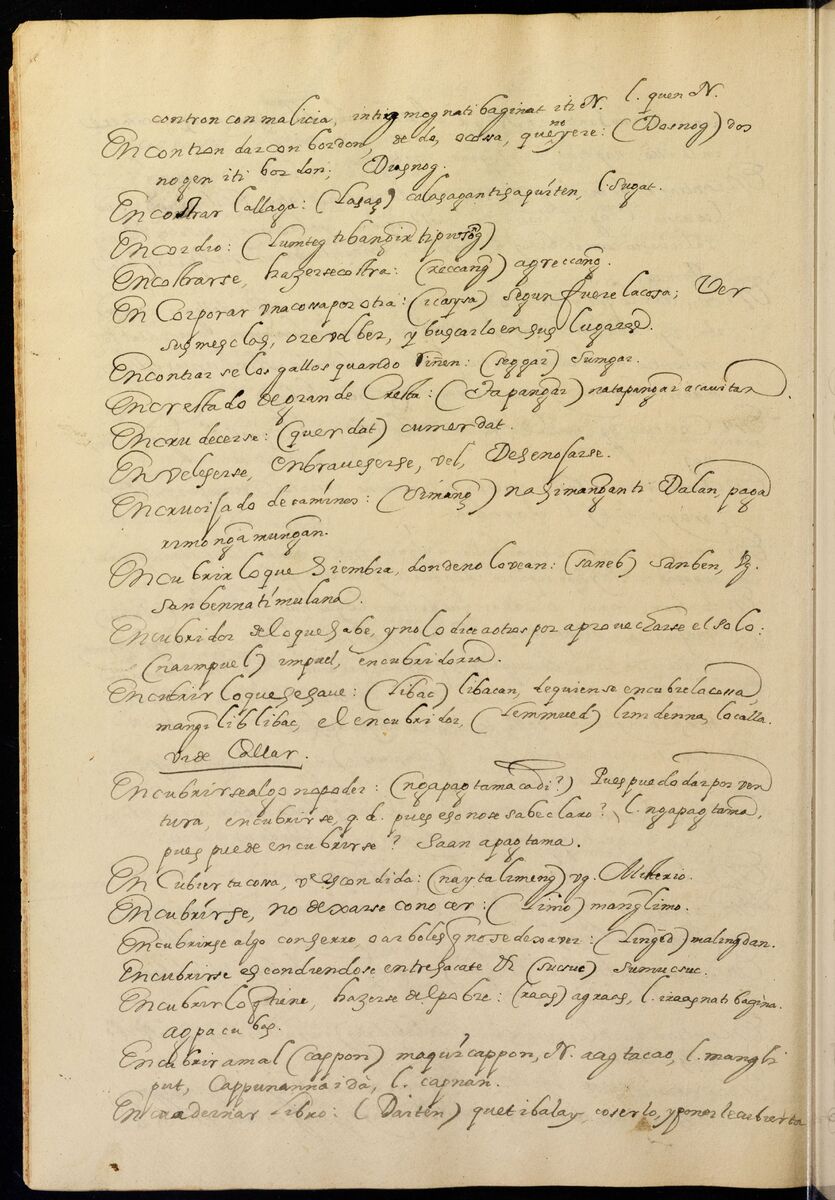 contron con malicia, intig mognati baginat iti N. l. quen N.
Encontron dar con bordon, de do, o cosa, que no yere: (Dosnog) dos
nogen iti bordon; Dusnog.
Encontrar callaga: (Lasag) calasagantisaquiten, l. sugat.
Encordio: (Lumteg ti bangir ti pusong)
Encostrarse, hazerse costra: (reccang) agreccang.
En Corporar vna cosa por otra: (icaysa) segun fuere la cosa; Ver
sus mesclas, o revolber, y buscarlo en sus lugares.
Encontrarse los gallos quando riñen: (seggar) sumgar.
Encrestado de grande Cresta: (Tapangar) natapangar a cauitan.
Encrudecerse: (querdat) cumerdat.
Enveleserse, enbraveserse, vel, Desenojarse.
Encrucisado de caminos: (Simang) nasimangan ti Dalan, paga
rimongamungan.
Encubrir lo que siembra, donde no lo vean: (saneb) sanben, vg.
sanbenna ti mulana.
Encubridor de lo que sabe, y no lo dice a otros por aprovecharse el solo:
(naimpuel) impuel, encubridoria.
Encubrir lo que se save: (Libac) libacan, de quien se encubre la cosa,
mangi lib libac, el encubridor, (Lemmued) limdenna, lo calla.
vide Callar.
Encubrirse algo no poder: (ngapagtama cadi?) Pues puedo dar por ven
tura, encubrirse, q. d. pues eso no se sabe claro? l. ngapagtama,
pues puede encubrirse? Saan apagtama.
En Cubierta cosa, v escondida: (naytalimeng) vg. Misterio.
Encubrirse, no dexarse conocer: (Limo) manglimo.
Encubrirse algo con serro, o arboles q no se dexa ver: (Lingod) malingdan.
Encubrirse escondiendose entre sacate (sucsuc) sumucsuc.
Encubrir lo q tiene, hazerse del pobre: (raas) agraas, l. iraasnati bagina.
agpacubas.
Encubrir a mal (cappon) maquicappon, N. aagtacao, l. mangli
put, Cappunanna ida, l. capnan.
Encuadernar Libro: (Daiten) quet ibalay, coserlo, y ponerle cubierta